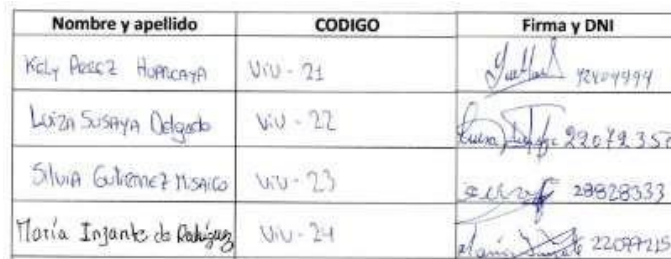 Nombre y apellido CODIGO Firma y DNI
Kely Perez Huarcaya ViU - 21
Luiza Susaya Delgado ViU - 22
Silvia Gutierrez ViU - 23 28828333
María Infante de Rodríguez ViU - 24 22077215